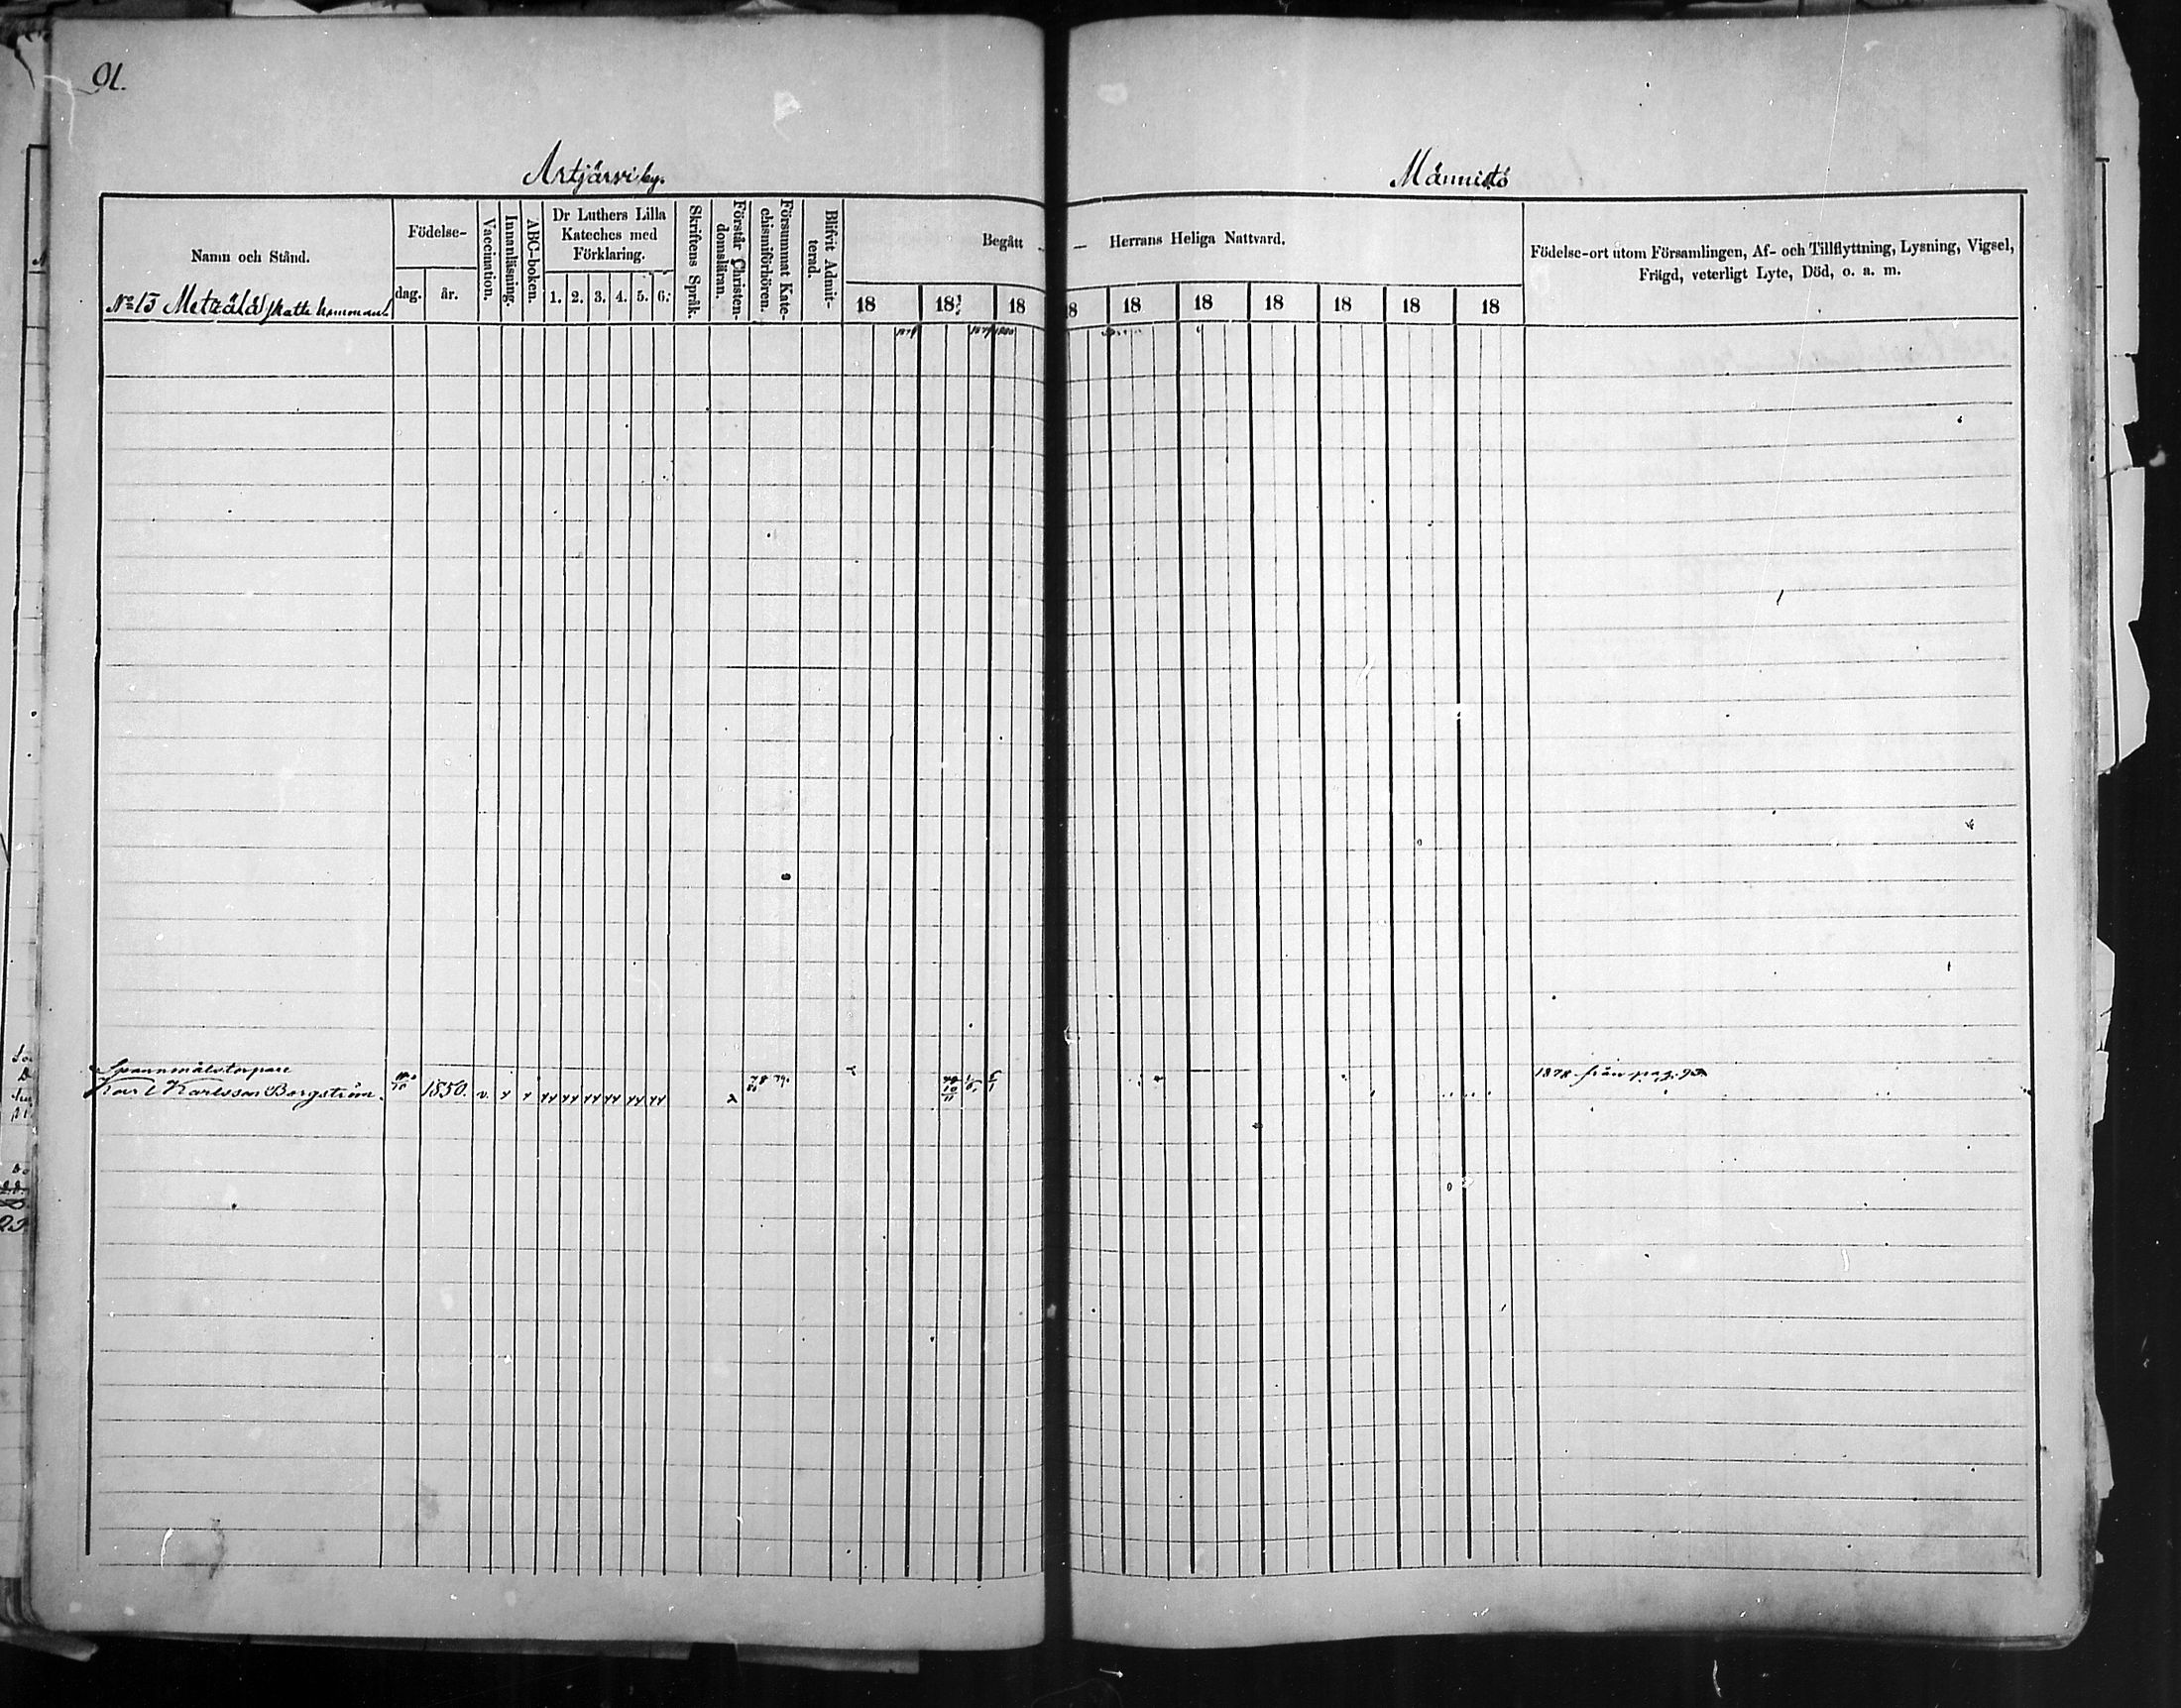 91.
Artjärvi by.
Männistö
Namn och Stånd.
Födelse-
dag.
år.
Vaccination.
Innanläsning.
ABC-boken.
Dr Luthers Lilla
Kateches med
Förklaring.
1. 2. 3. 4. 5. 6.
Skriftens Språk.
Förstår Christen-
domsläran.
Försummat Kate-
chismiförhören.
Blifvit Admit-
terad.
Begått — Herrans Heliga Nattvard.
18 18 18 18 18 18 18 18 18 18
Födelse-ort utom Församlingen, Af- och Tillflyttning, Lysning, Vigsel,
Frägd, veterligt Lyte, Död, o. a. m.
No 15 Mettälä Skatte hemman
1878 1879 1880
Spannmålstorpare
Karl Karlsson Borgström. 1850. v.
78 79.
1878 från pag. 93